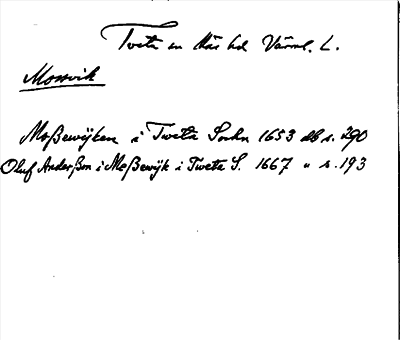 Tveta sn Näs hd Värml. L.
Mosvik
Moßewijken i Tweta Sockn 1653 db s. 290
Oluf Anderßon i Moßewijk i Tweta S. 1667 " s. 193